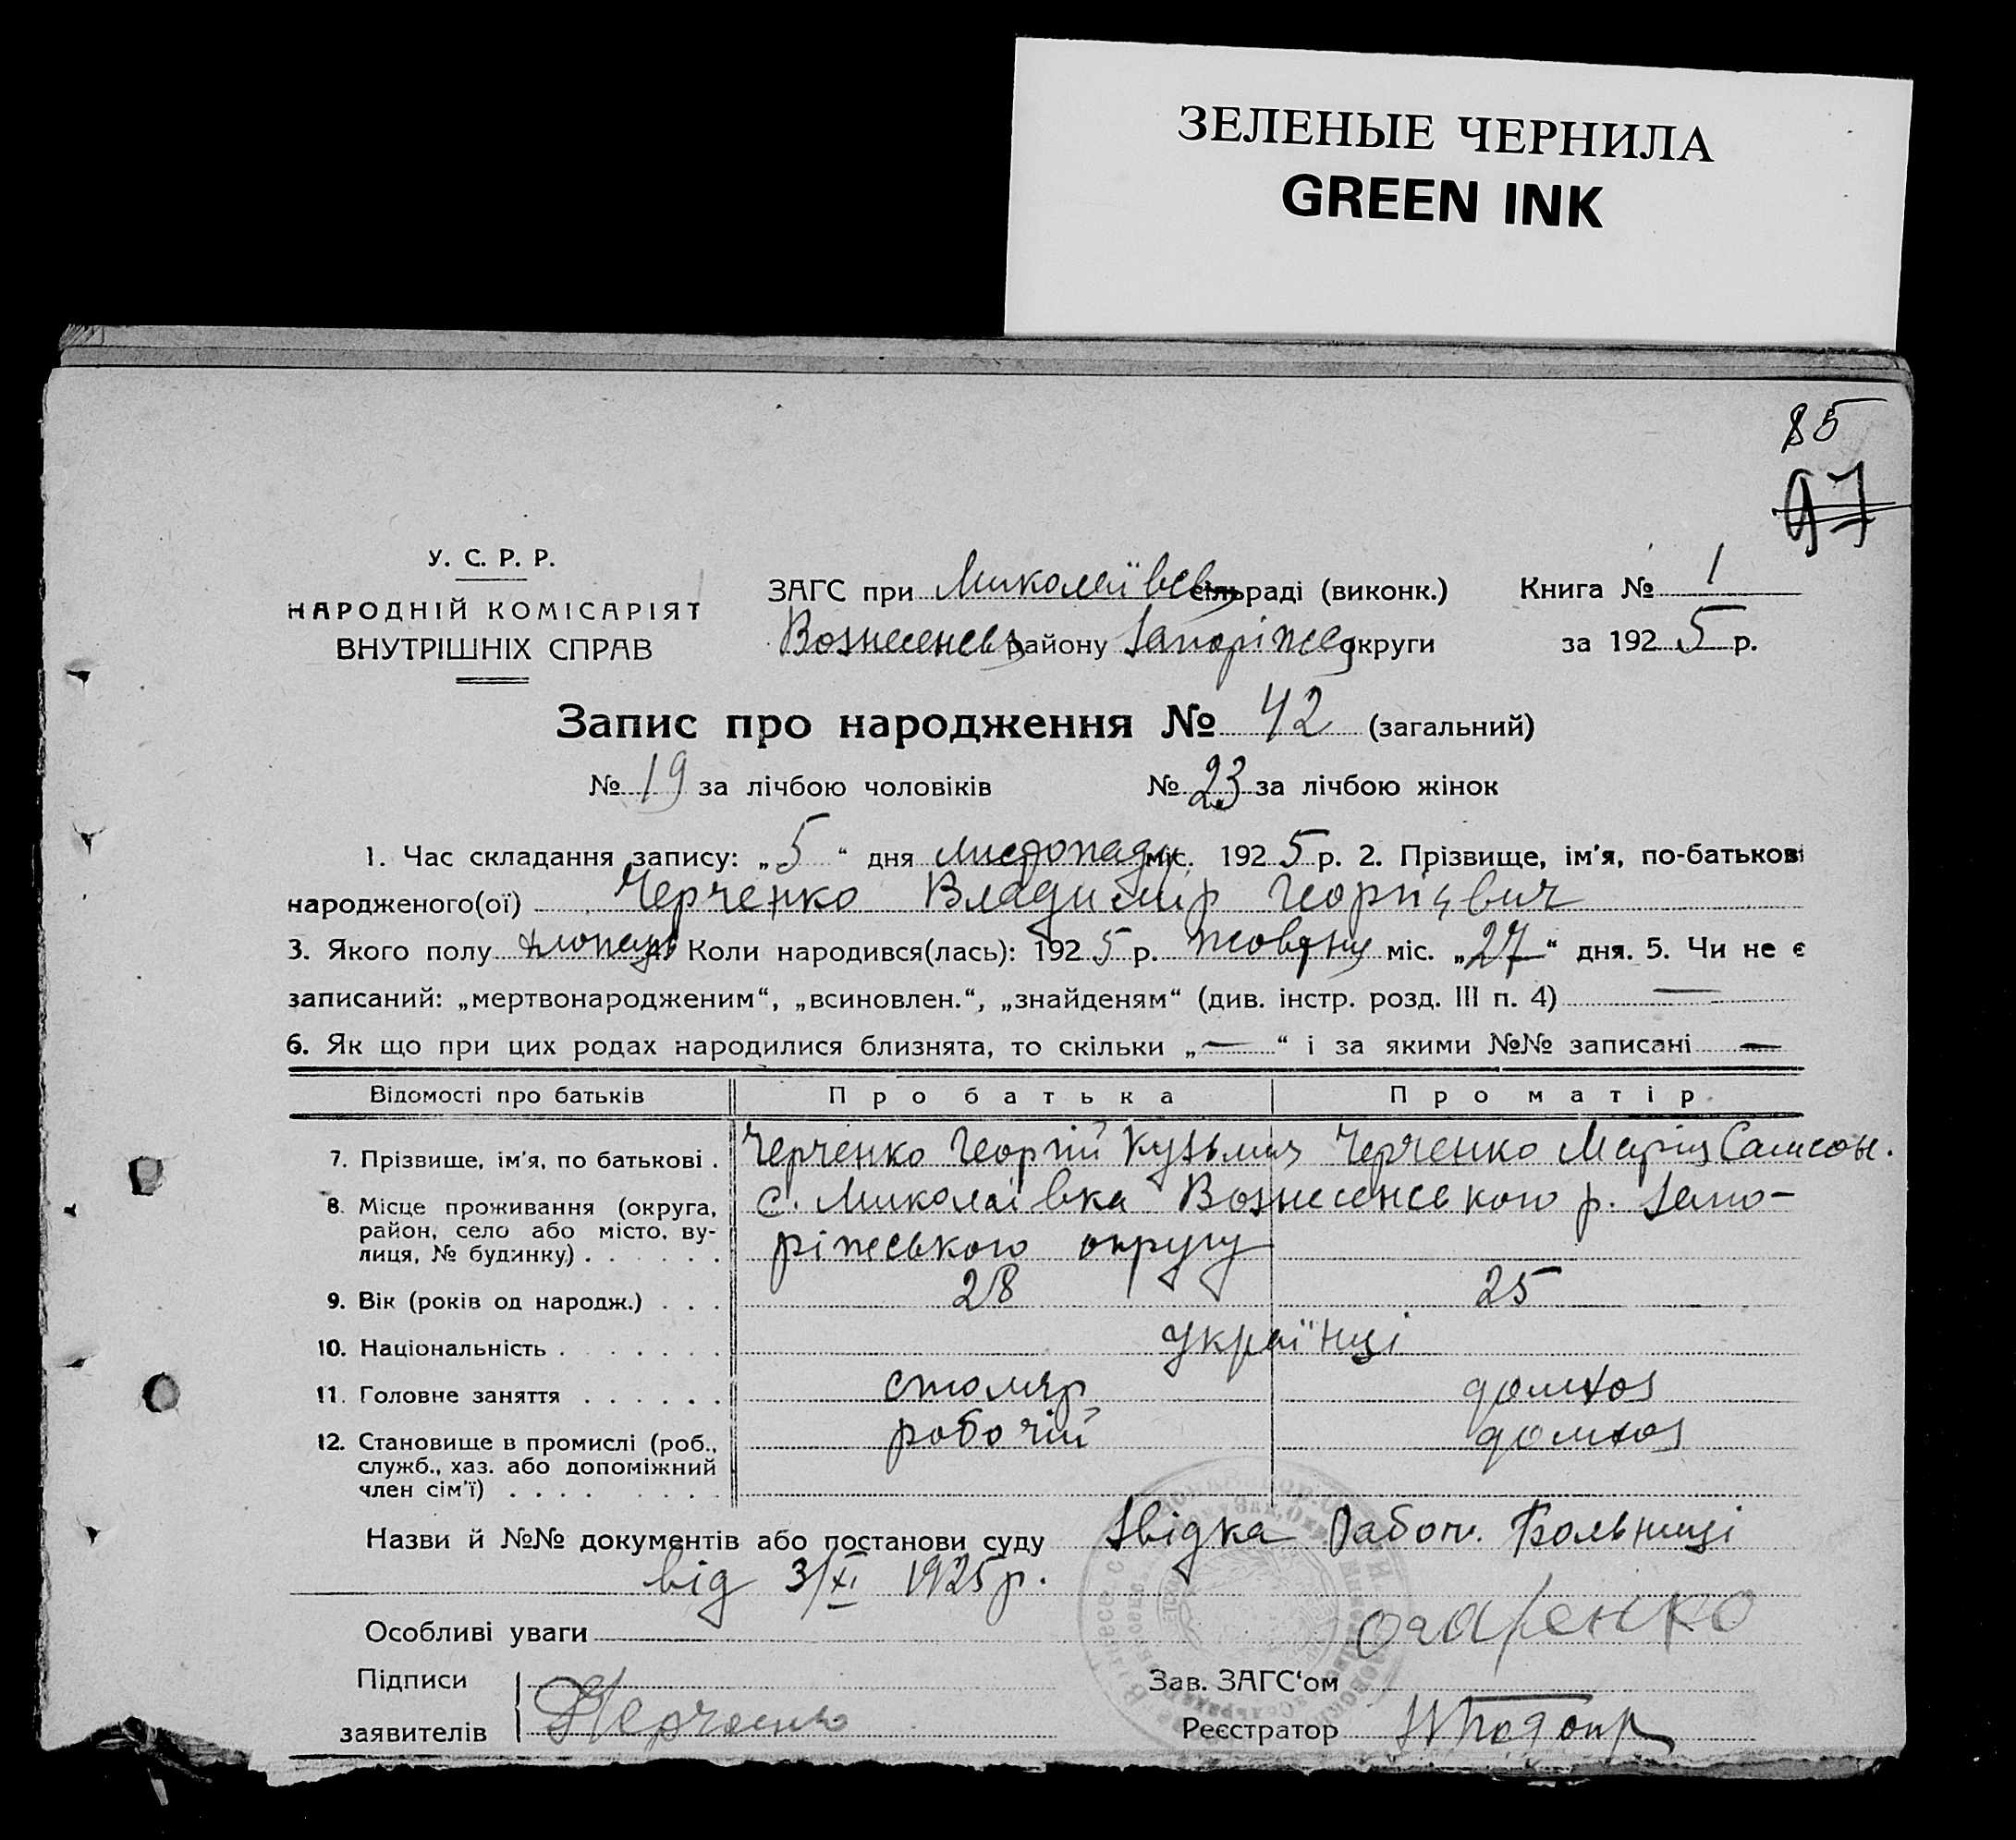 ЗЕЛЕНЫЕ ЧЕРНИЛА
GREEN INK
85
97
У. С. Р. Р.
НАРОДНІЙ КОМІСАРІЯТ
ВНУТРІШНІХ СПРАВ
ЗАГС при Миколаївськ сільраді (виконк.) Книга № 1
Вознесенськ району Запоріжськ округи за 1925 р.
Запис про народження № 42 (загальний)
№ 19 за лічбою чоловіків № 23 за лічбою жінок
1. Час складання запису: „5“ дня листопаду міс. 1925 р. 2. Прізвище, ім'я, по-батькові
народженого(ої) Черченко Владимір Георгієвич
3. Якого полу хлопець 4. Коли народився(лась): 1925 р. жовтну міс. „27“ дня. 5. Чи не є
записаний: „мертвонародженим“, „всиновлен.“, „знайденям“ (див. інстр. розд. III п. 4) —
6. Як що при цих родах народилися близнята, то скільки „—“ і за якими №№ записані —
Відомості про батьків Про батька Про матір
7. Прізвище, ім'я, по батькові . Черченко Георгій Кузьмич Черченко Марія Самсон.
8. Місце проживання (округа, район, село або місто, вулиця, № будинку) . . . . . . с. Миколаівка Вознесенського р. Запо-
ріжського округу
9. Вік (років од народж.) . . . 28 25
10. Національність . . . . . . . українці
11. Головне заняття . . . . . . столяр домхоз
12. Становище в промислі (роб., служб., хаз. або допоміжний член сім'ї) . . . . . . . . робочій домхоз
Назви й №№ документів або постанови суду Звідка Рабоч. Больниці
від 3/XI 1925 р.
Особливі уваги
Підписи
заявителів Черченко
Зав. ЗАГС'ом
Реєстратор